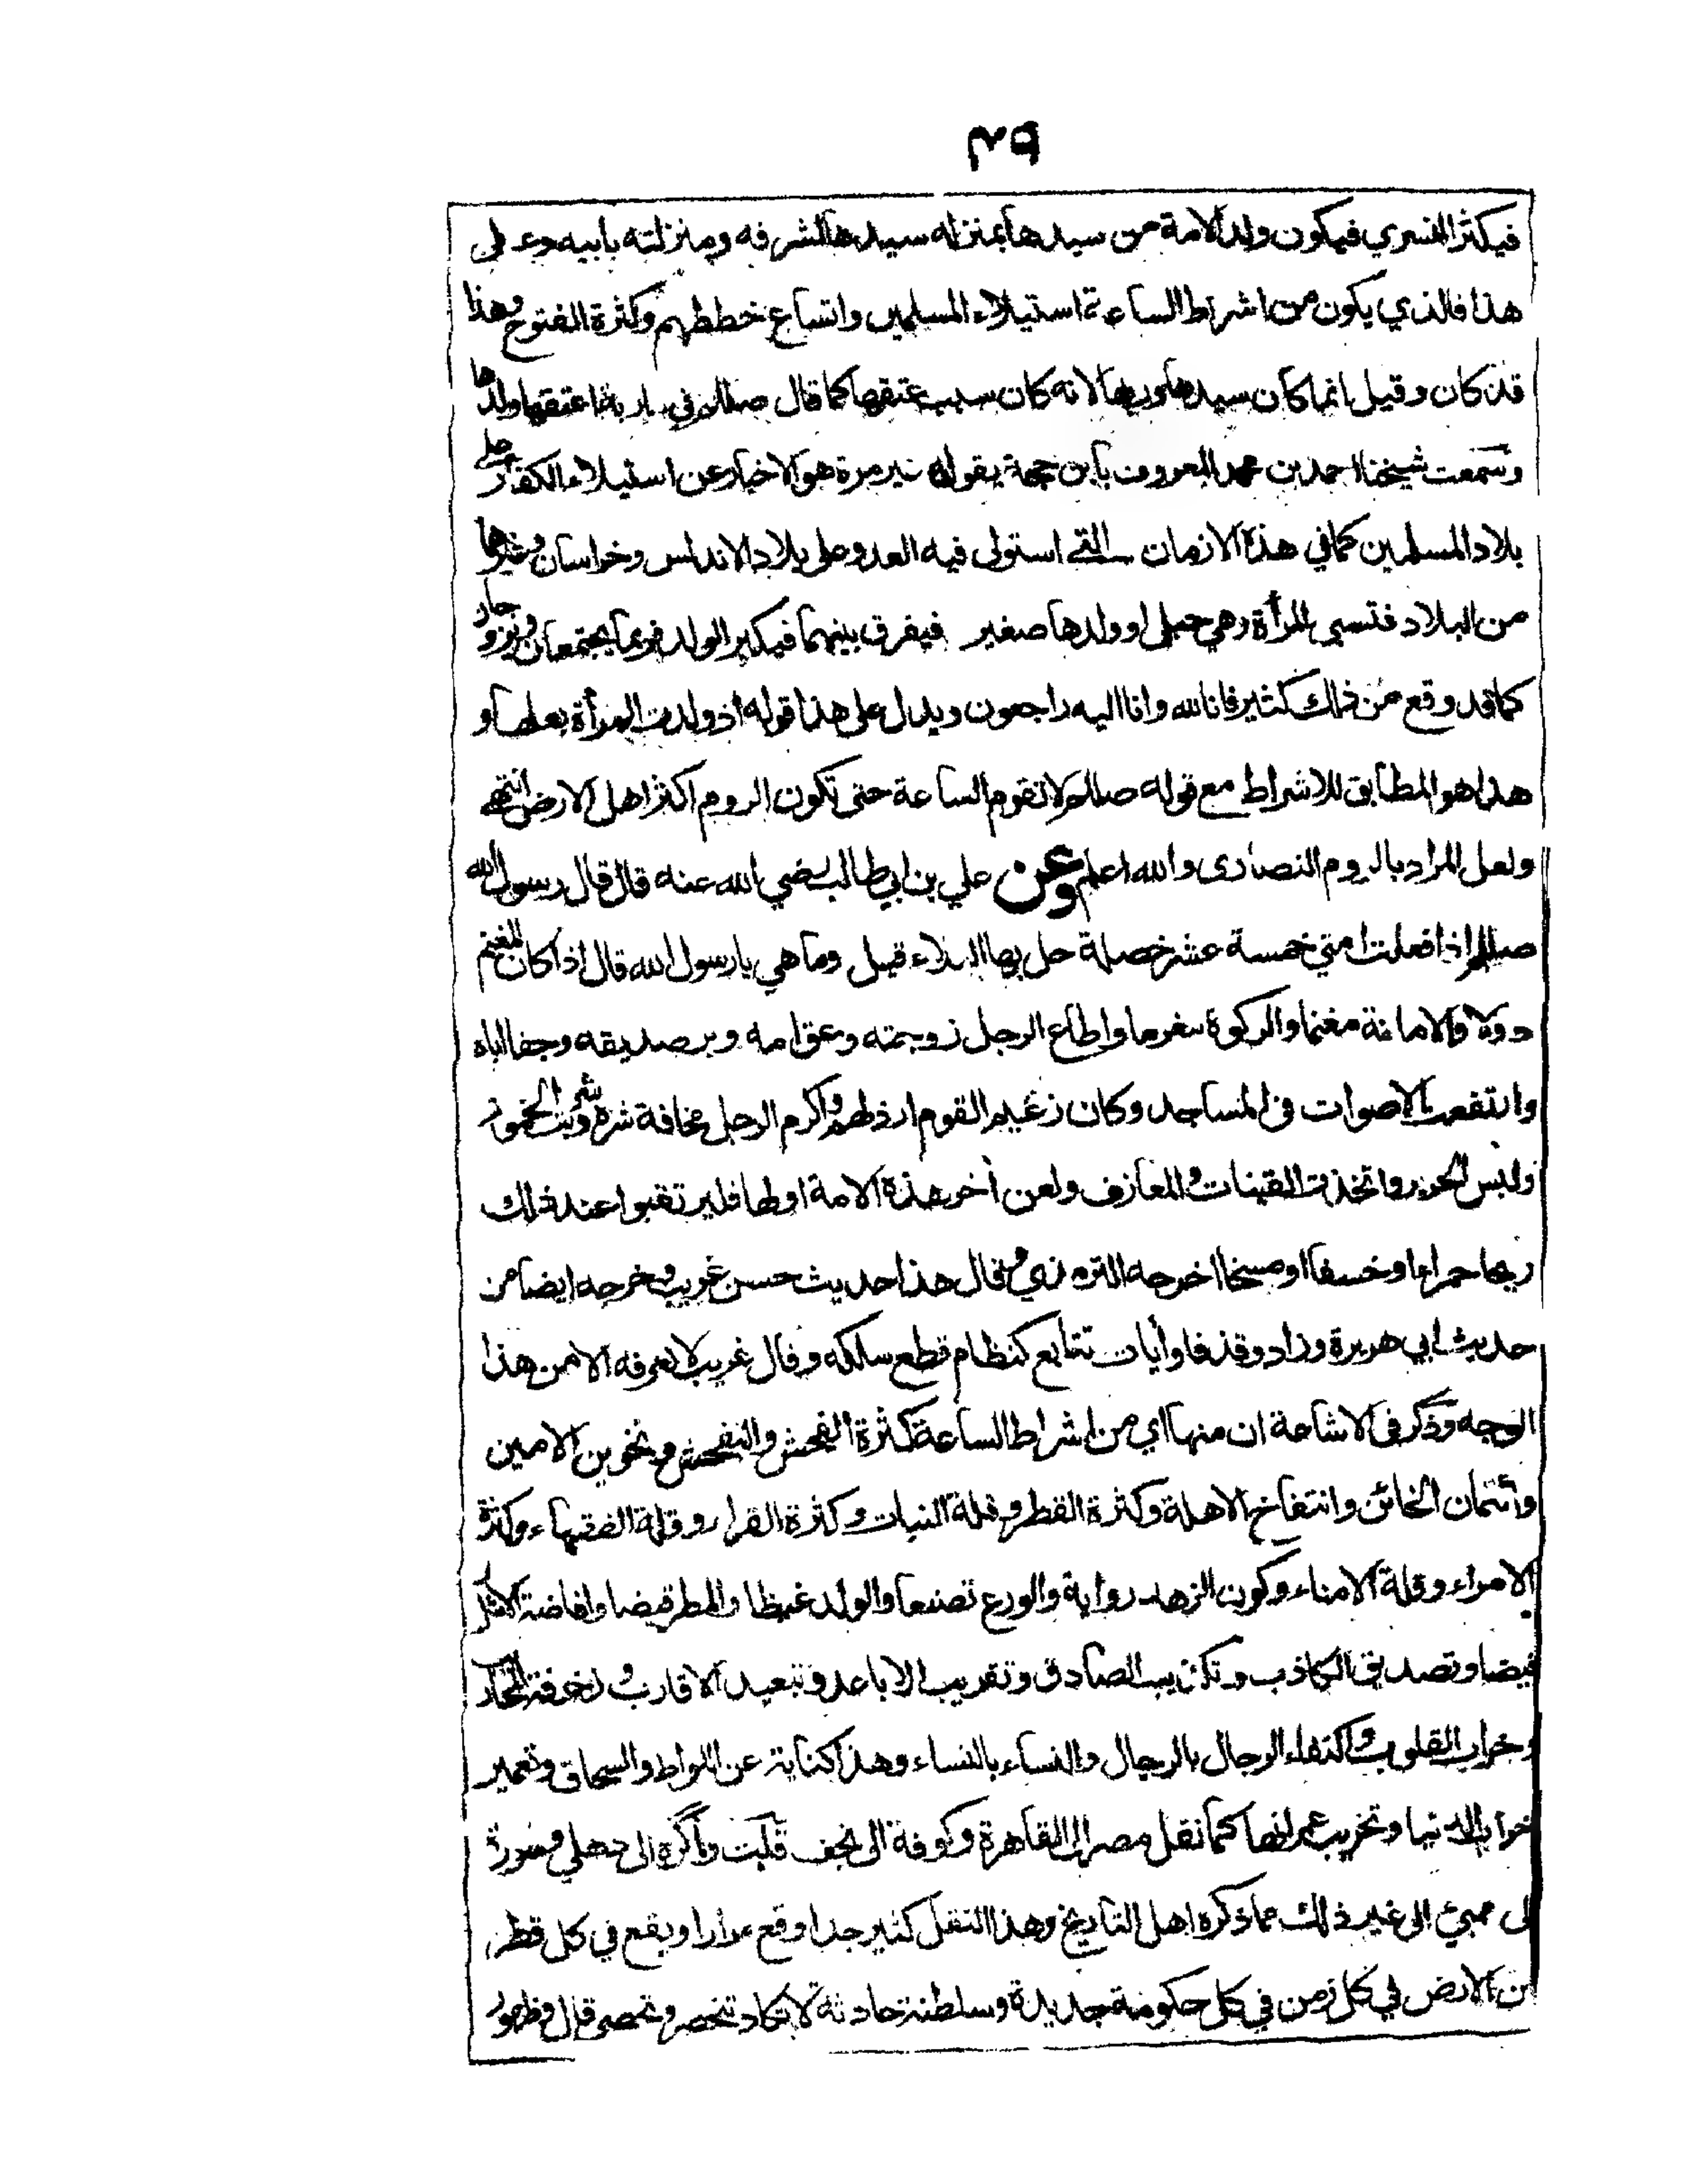 ٣٩
فيكثر التسري فيكون ولد الامة من سيدها بمنزلة سيدها لشرفه ومنزلته بابيه وعلى
هذا فالذي يكون من اشراط الساعة استيلاء المسلمين واتساع خططهم وكثرة الفتوح وهذا
قد كان وقيل انما كان سيدها وربها لانه كان سبب عتقها كما قال صللم في مارية اعتقها ولدها
وسمعت شيخنا احمد بن محمد المعروف بابن حجة يقوله غير مرة هو الاخبار عن استيلاء الكفار على
بلاد المسلمين كما في هذه الازمان التي استولى فيه العدو على بلاد الاندلس وخراسان وغيرها
من البلاد فتسبى المرأة وهي حبلى او ولدها صغير فيفرق بينهما فيكبر الولد فربما يجتمعان ويتزوجان
كما قد وقع من ذلك كثير فانا لله وانا اليه راجعون ويدل على هذا قوله اذ ولدت المرأة بعلها و
هذا هو المطابق للاشراط مع قوله صللم لا تقوم الساعة حتى تكون الروم اكثر اهل الارض انتهى
ولعل المراد بالروم النصارى والله اعلم وعن علي بن ابي طالب رضي الله عنه قال قال رسول الله
صللم اذا فعلت امتي خمسة عشر خصلة حل بها البلاء قيل وما هي يا رسول الله قال اذا كان المغنم
دولا والامانة مغنما والزكوة مغرما واطاع الرجل زوجته وعق امه وبر صديقه وجفا اباه
وارتفعت الاصوات في المساجد وكان زعيم القوم ارذلهم واكرم الرجل مخافة شره وشربت الخمور
ولبس الحرير واتخذت القينات والمعازف ولعن أخر هذه الامة اولها فليرتقبوا عند ذلك
ريحا حمراء او خسفا او مسخا اخرجه الترمذي وقال هذا حديث حسن غريب وخرجه ايضا من
حديث ابي هريرة وزاد وقذفا وأيات تتابع كنظام قطع سلكه وقال غريب لا نعرفه الا من هذا
الوجه وذكر في الاشاعة ان منها اي من اشراط الساعة كثرة الفحش والتفحش وتخوين الامين
وائتمان الخائن وانتفاخ الاهلة وكثرة القطر وقلة النبات وكثرة القراء وقلة الفقهاء وكثرة
الامراء وقلة الامناء وكون الزهد رواية والورع تصنعا والولد غيظا والمطر قيضا وافاضة
فيضا وتصديق الكاذب وتكذيب الصادق وتقريب الاباعد وتبعيد الاقارب وزخرفة
وخراب القلوب واكتفاء الرجال بالرجال والنساء بالنساء وهذا كناية عن اللواط والسحاق وتعمير
خراب الدنيا وتخريب عمرانها كما نقل مصر الى القاهرة وكوفة الى نجف قلت وأگره الى دهلي وسورة
لى ممبئ الى غير ذلك مما ذكره اهل التاريخ وهذا النقل كثير جدا وقع مرارا ويقع في كل قطر
من الارض في كل زمن في كل حكومة جديدة وسلطنة حادثة لا تكاد تنحصر وتحصى قال وظهور